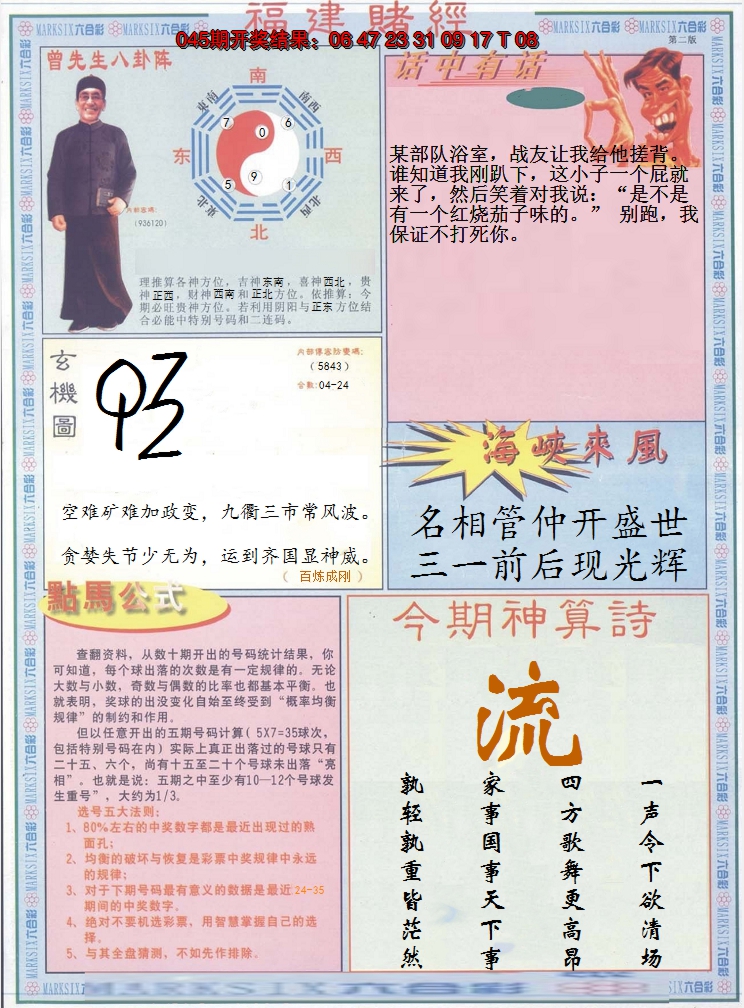 福建賭經
045期开奖结果：06 47 23 31 09 17 T 08
MARKSIX六合彩 MARKSIX六合彩 MARKSIX六合彩 MARKSIX六合彩
第二版
曾先生八卦阵
南
东南
南西
7
0
6
东
西
5
9
1
東北
北西
北
内部密碼:
(936120)
理推算各神方位，吉神东南，喜神西北，贵
神正西，财神西南和正北方位。依推算：今
期必旺贵神方位。若利用阴阳与正东方位结
合必能中特别号码和二连码。
话中有话
某部队浴室，战友让我给他搓背。
谁知道我刚趴下，这小子一个屁就
来了，然后笑着对我说：“是不是
有一个红烧茄子味的。” 别跑，我
保证不打死你。
玄機圖
内部傳密防密碼:
(5843)
合數:04-24
空难矿难加政变，九衢三市常风波。
贪婪失节少无为，运到齐国显神威。
（ 百炼成刚 ）
海峽來風
名相管仲开盛世
三一前后现光辉
點馬公式
查翻资料，从数十期开出的号码统计结果，你
可知道，每个球出落的次数是有一定规律的。无论
大数与小数，奇数与偶数的比率也都基本平衡。也
就表明，奖球的出没变化自始至终受到“概率均衡
规律”的制约和作用。
但以任意开出的五期号码计算( 5X7=35球次，
包括特别号码在内) 实际上真正出落过的号球只有
二十五、六个，尚有十五至二十个号球未出落“亮
相”。也就是说：五期之中至少有10—12个号球发
生重号”，大约为1/3。
选号五大法则：
1、80%左右的中奖数字都是最近出现过的熟
面孔；
2、均衡的破坏与恢复是彩票中奖规律中永远
的规律；
3、对于下期号码最有意义的数据是最近24-35
期间的中奖数字。
4、绝对不要机选彩票，用智慧掌握自己的选
择。
5、与其全盘猜测，不如先作排除。
今期神算詩
流
一声令下欲清场
四方歌舞更高昂
家事国事天下事
孰轻孰重皆茫然